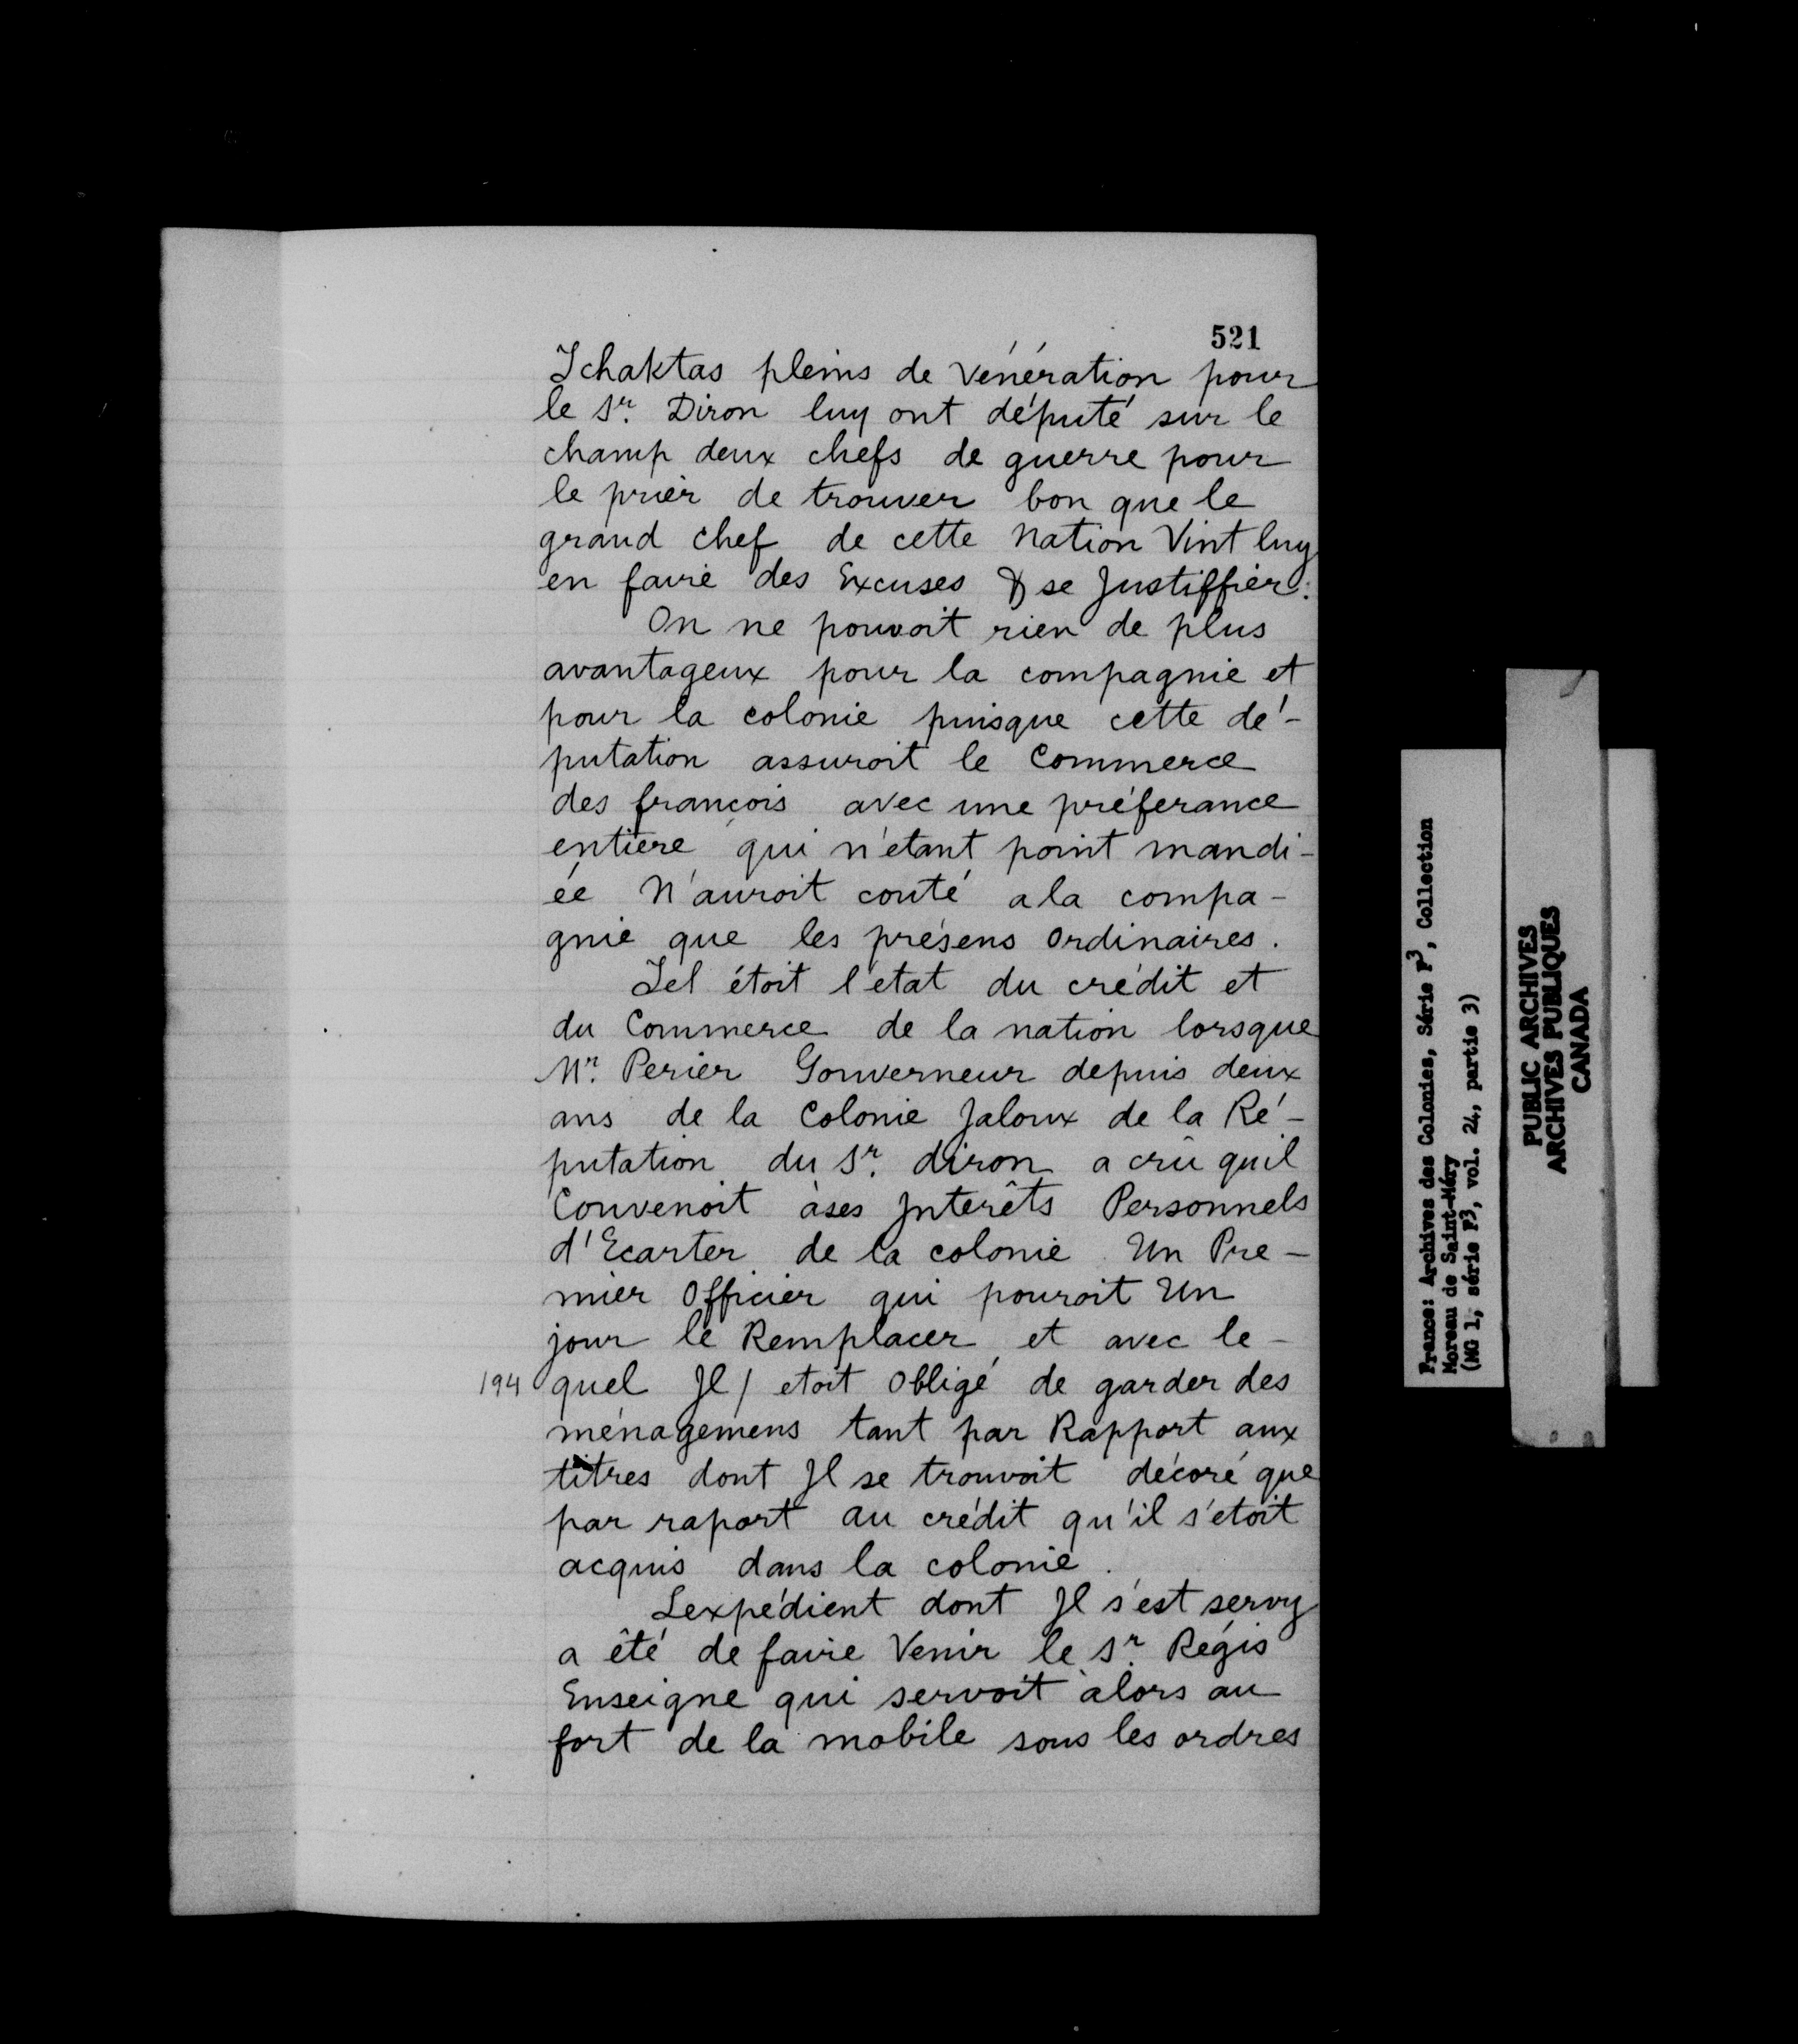 521
Tchaktas pleins de Vénération pour
le Sr. Diron luy ont député sur le
champ deux chefs de guerre pour
le prier de trouver bon que le
grand chef de cette Nation Vint luy
en faire des Excuses & se Justiffier.
On ne pouvoit rien de plus
avantageux pour la compagnie et
pour la colonie puisque cette dé-
putation assuroit le Commerce
des françois avec une préferance
entiere qui n'étant point mandi-
ée N'auroit couté a la compa-
gnie que les présens Ordinaires.
Tel étoit l'état du crédit et
du Commerce de la nation lorsque
Mr. Perier Gouverneur depuis deux
ans de la Colonie Jaloux de la Ré-
putation du Sr. diron a crû quil
Convenoit àses Interêts Personnels
d'Ecarter de la colonie Un Pre-
mier Officier qui pouroit Un
jour le Remplacer et avec le-
194 quel Il / etoit Obligé de garder des
ménagemens tant par Rapport aux
titres dont Il se trouvoit décoré que
par raport au crédit qu'il s'étoit
acquis dans la colonie.
Lexpédient dont Il s'est servy
a été de faire Venir le Sr. Régis
Enseigne qui servoit àlors au
fort de la mobile sous les ordres
France: Archives des Colonies, Série F3, Collection
Moreau de Saint-Méry
(MG 1, série F3, vol. 24, partie 3)
PUBLIC ARCHIVES
ARCHIVES PUBLIQUES
CANADA